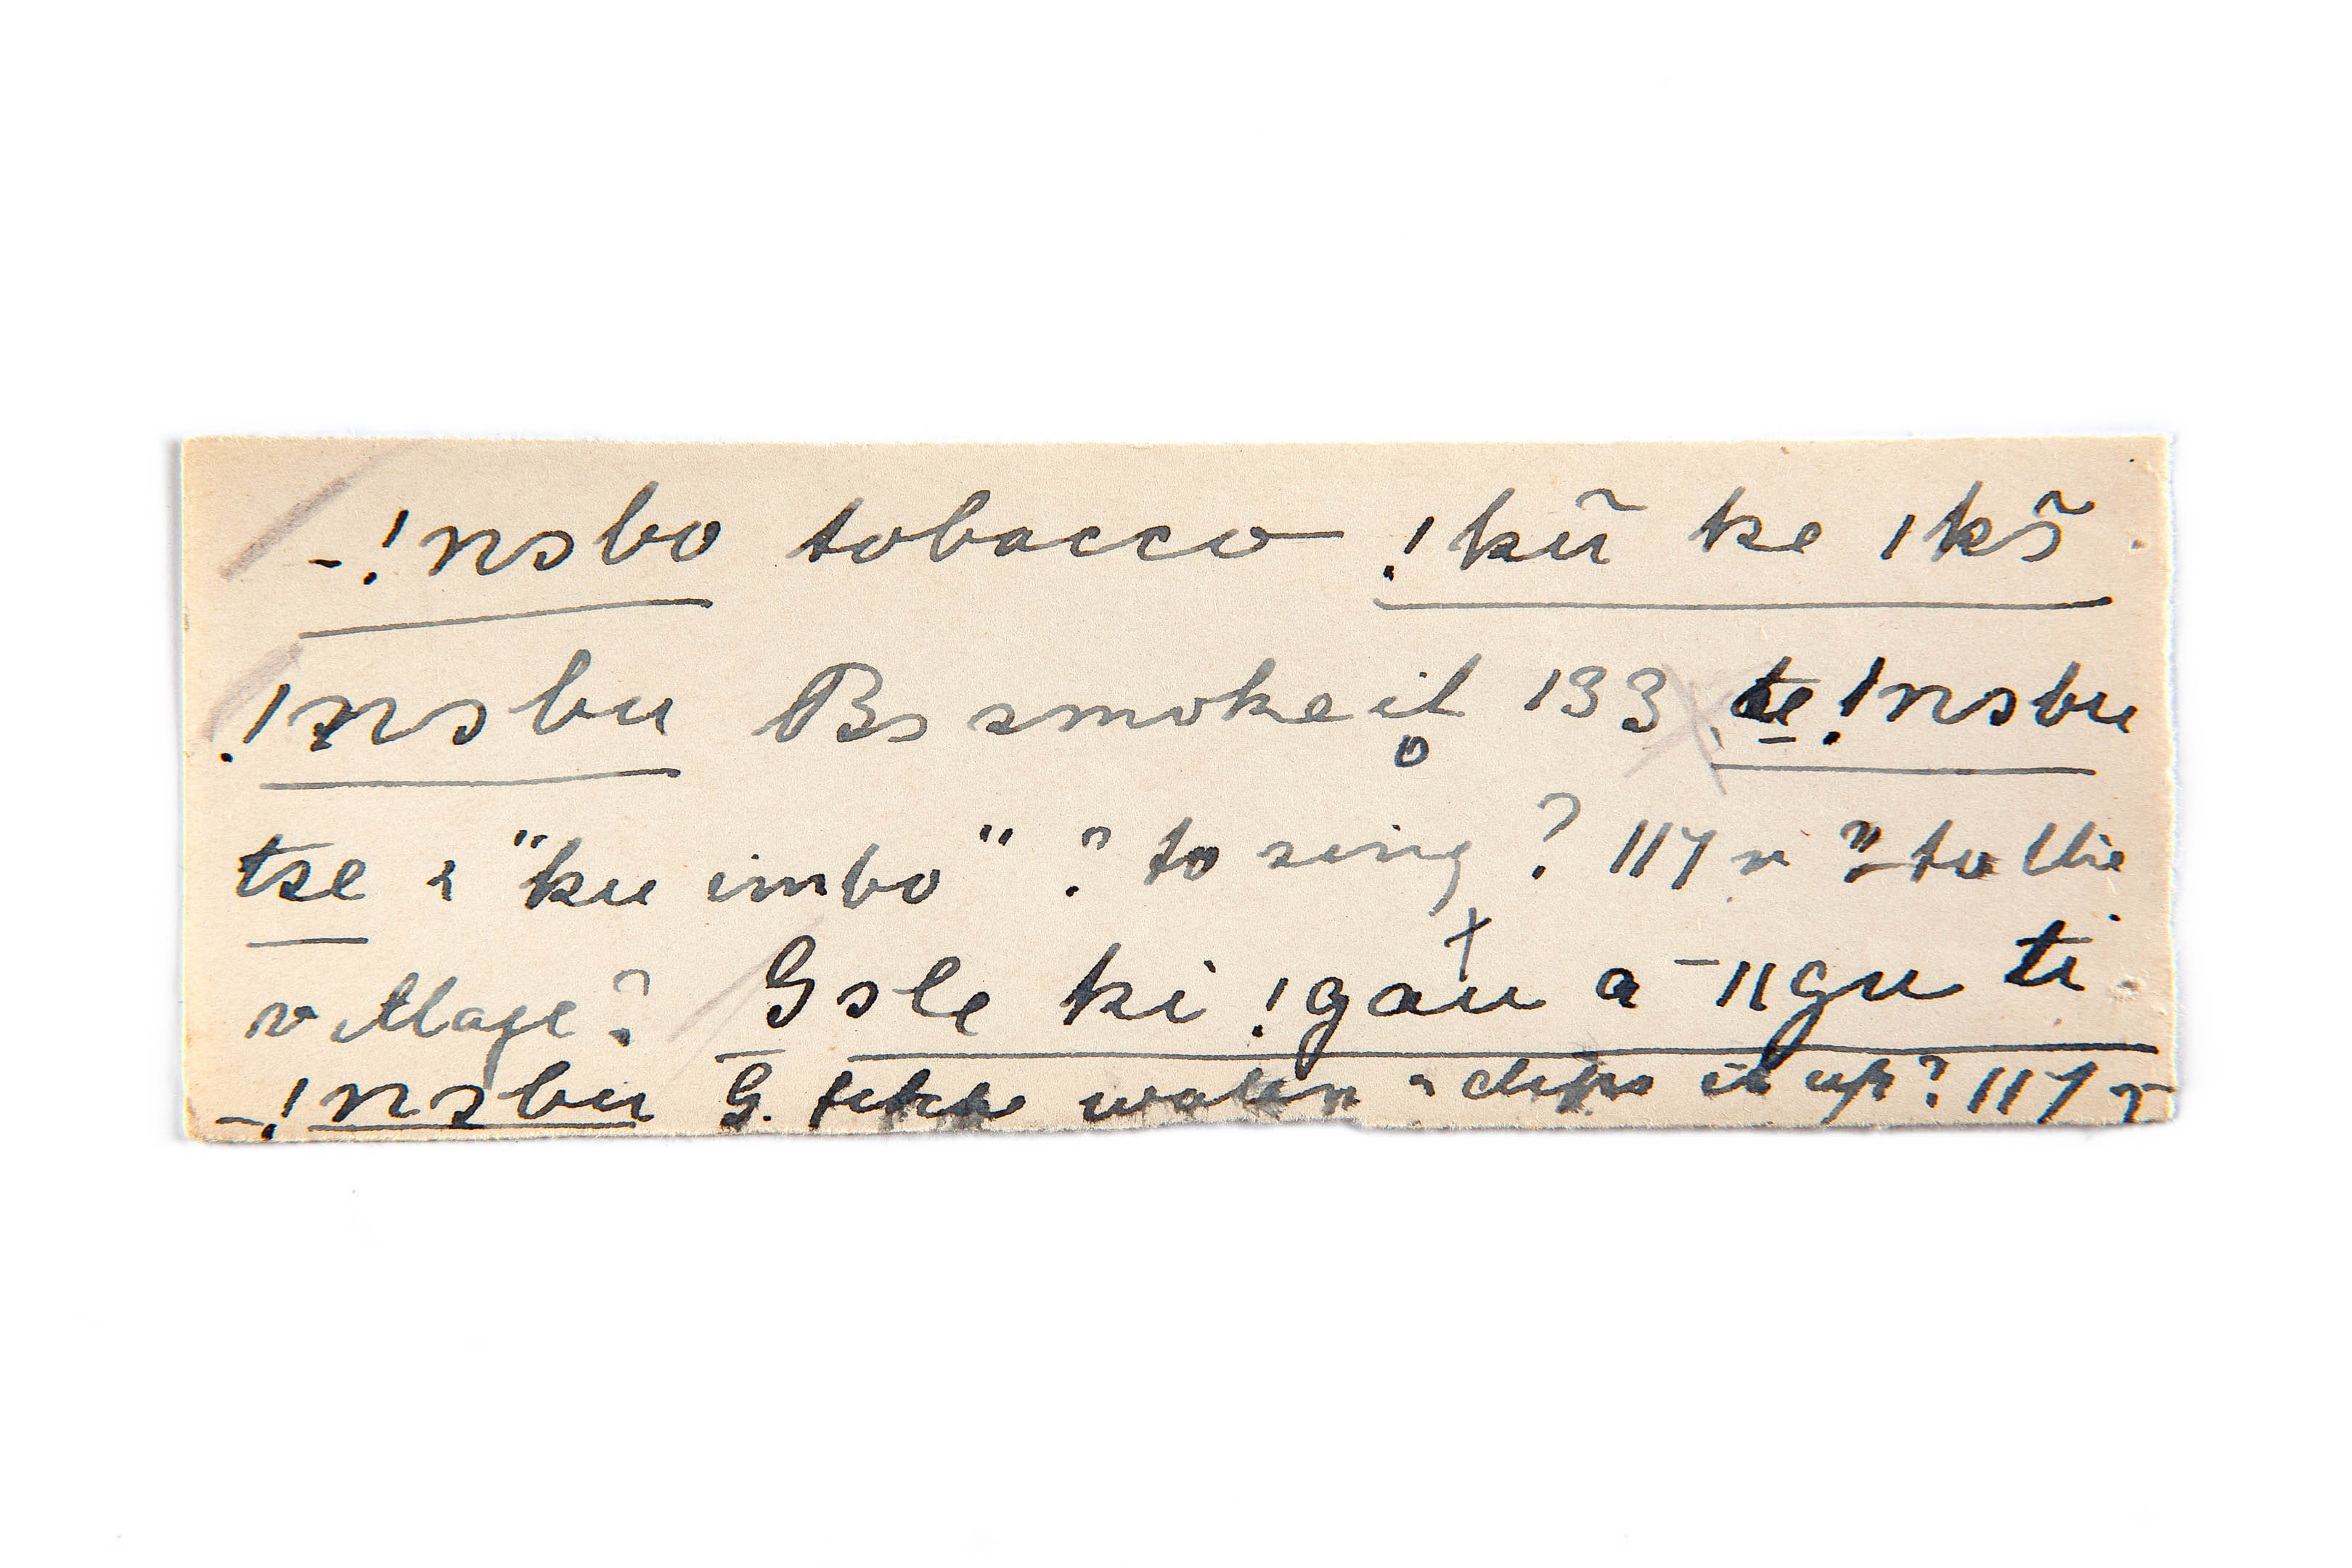 -!nɔbo tobacco !kũ ke ǀkɔ̃
!nɔbu Bs smoke it 133 te !nɔbu
tse & "ku imbo" ? to sing? 117 v ? to the
village? Gɔle ki !gau a ¯ǁgu ti
-!nɔbu G. takes water & dips it up? 117 v